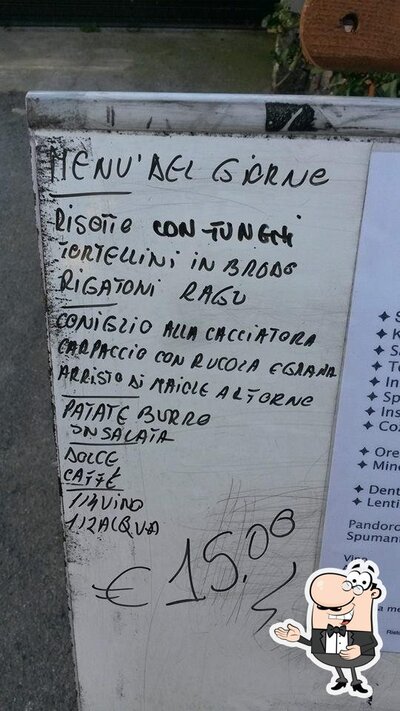 MENU' DEL GIORNO
RISOTTO CON FUNGHI
TORTELLINI IN BRODO
RIGATONI RAGU
CONIGLIO ALLA CACCIATORA
CARPACCIO CON RUCOLA E GRANA
ARRISTO DI MAIALE AL FORNO
PATATE BURRO
INSALATA
DOLCE
CAFFÈ
1/4 VINO
1/2 ACQUA
€ 15.00
Ore
Dent
Lenti
Pandoro
Spuman